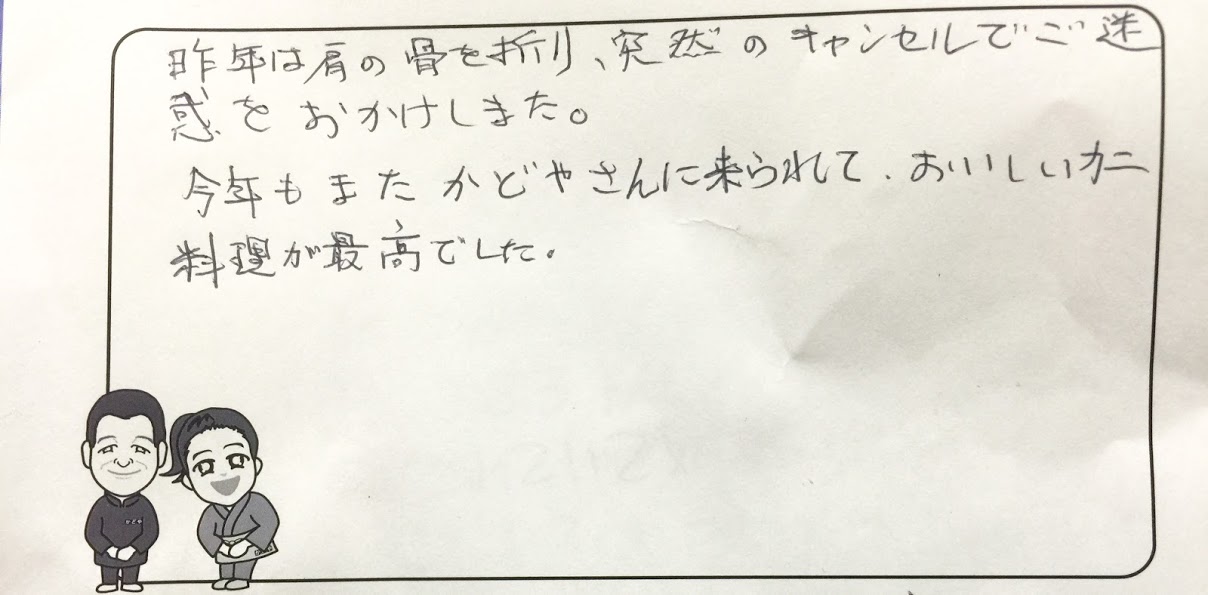 昨年は肩の骨を折り、突然のキャンセルでご迷
惑をおかけしました。
今年もまたかどやさんに来られて、おいしいカニ
料理が最高でした。
かどや